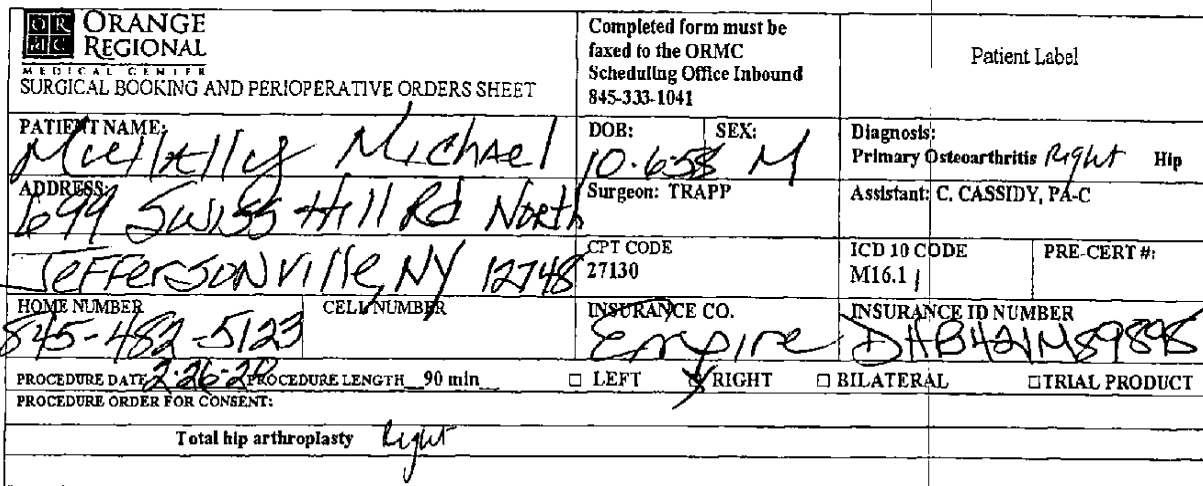 OR MC ORANGE REGIONAL
MEDICAL CENTER
SURGICAL BOOKING AND PERIOPERATIVE ORDERS SHEET
Completed form must be
faxed to the ORMC
Scheduling Office Inbound
845-333-1041
Patient Label
PATIENT NAME:
Michael
DOB: 10-6-58
SEX: M
Diagnosis:
Primary Osteoarthritis Right Hip
ADDRESS:
699 Swiss Hill Rd North
Jeffersonville, NY 12748
Surgeon: TRAPP
Assistant: C. CASSIDY, PA-C
CPT CODE
27130
ICD 10 CODE
M16.11
PRE-CERT #:
HOME NUMBER
845-482-5123
CELL NUMBER
INSURANCE CO.
Empire
INSURANCE ID NUMBER
PROCEDURE DATE 2-26-20 PROCEDURE LENGTH 90 min □ LEFT RIGHT □ BILATERAL □ TRIAL PRODUCT
PROCEDURE ORDER FOR CONSENT:
Total hip arthroplasty Right